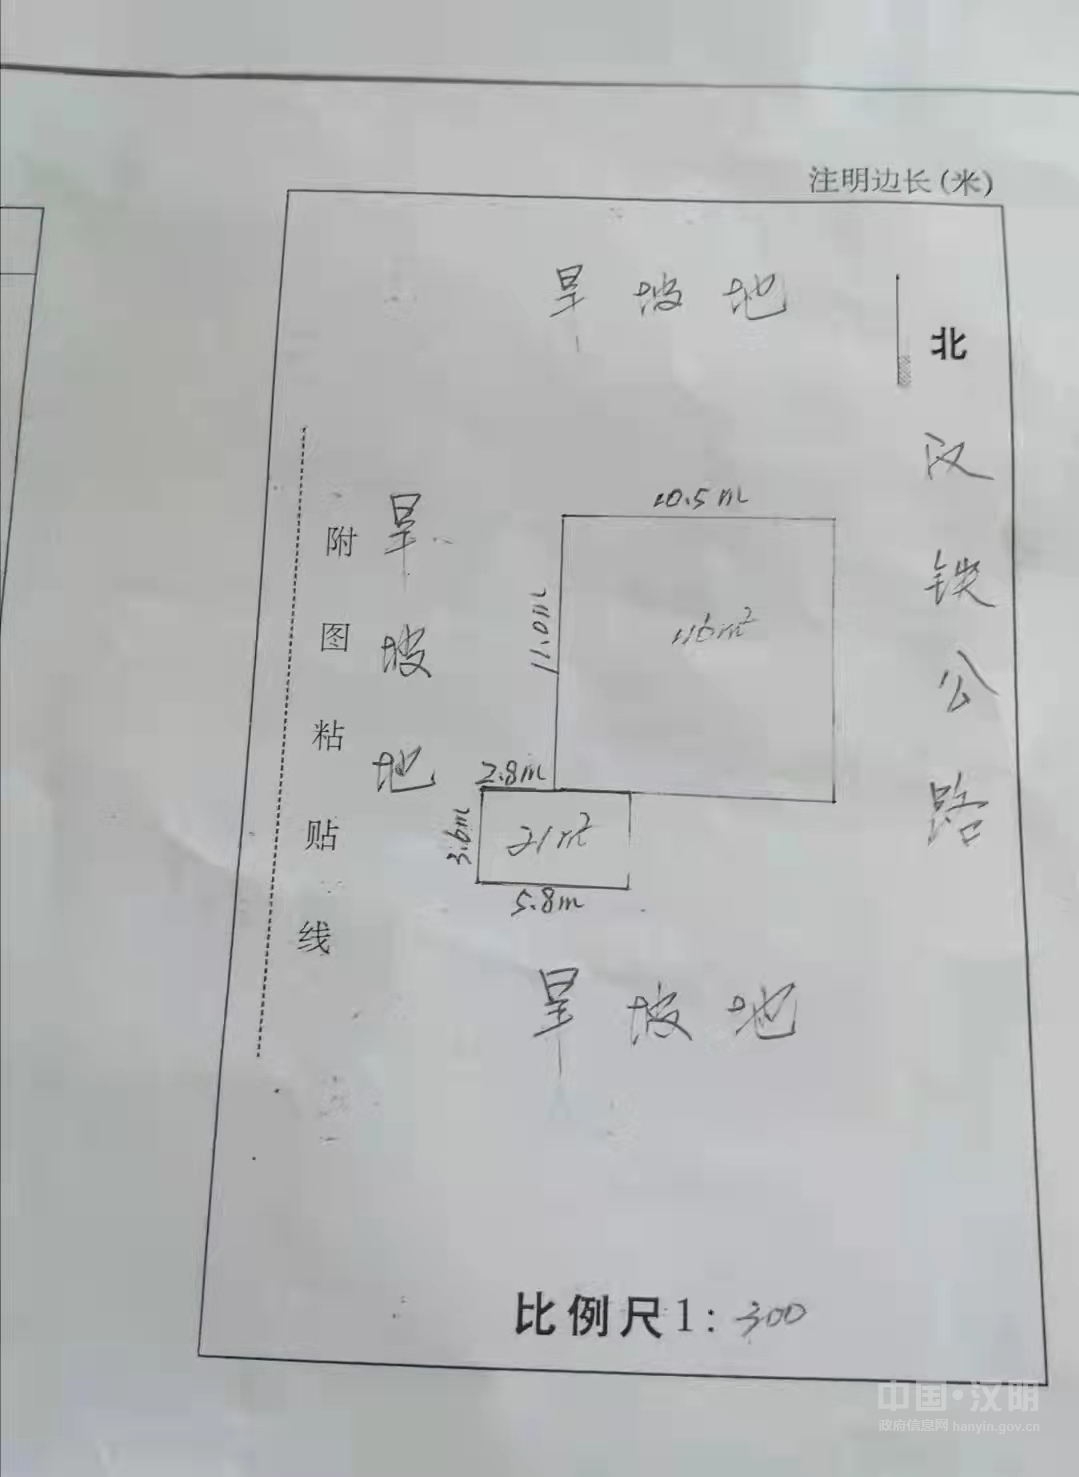 注明边长(米)
旱坡地
北
汉铁公路
附图粘贴线
旱坡地
10.5m
11.0m
116m²
2.8m
3.6m
21m²
5.8m
旱坡地
比例尺1:300
中国·汉阴
政府信息网 hanyin.gov.cn